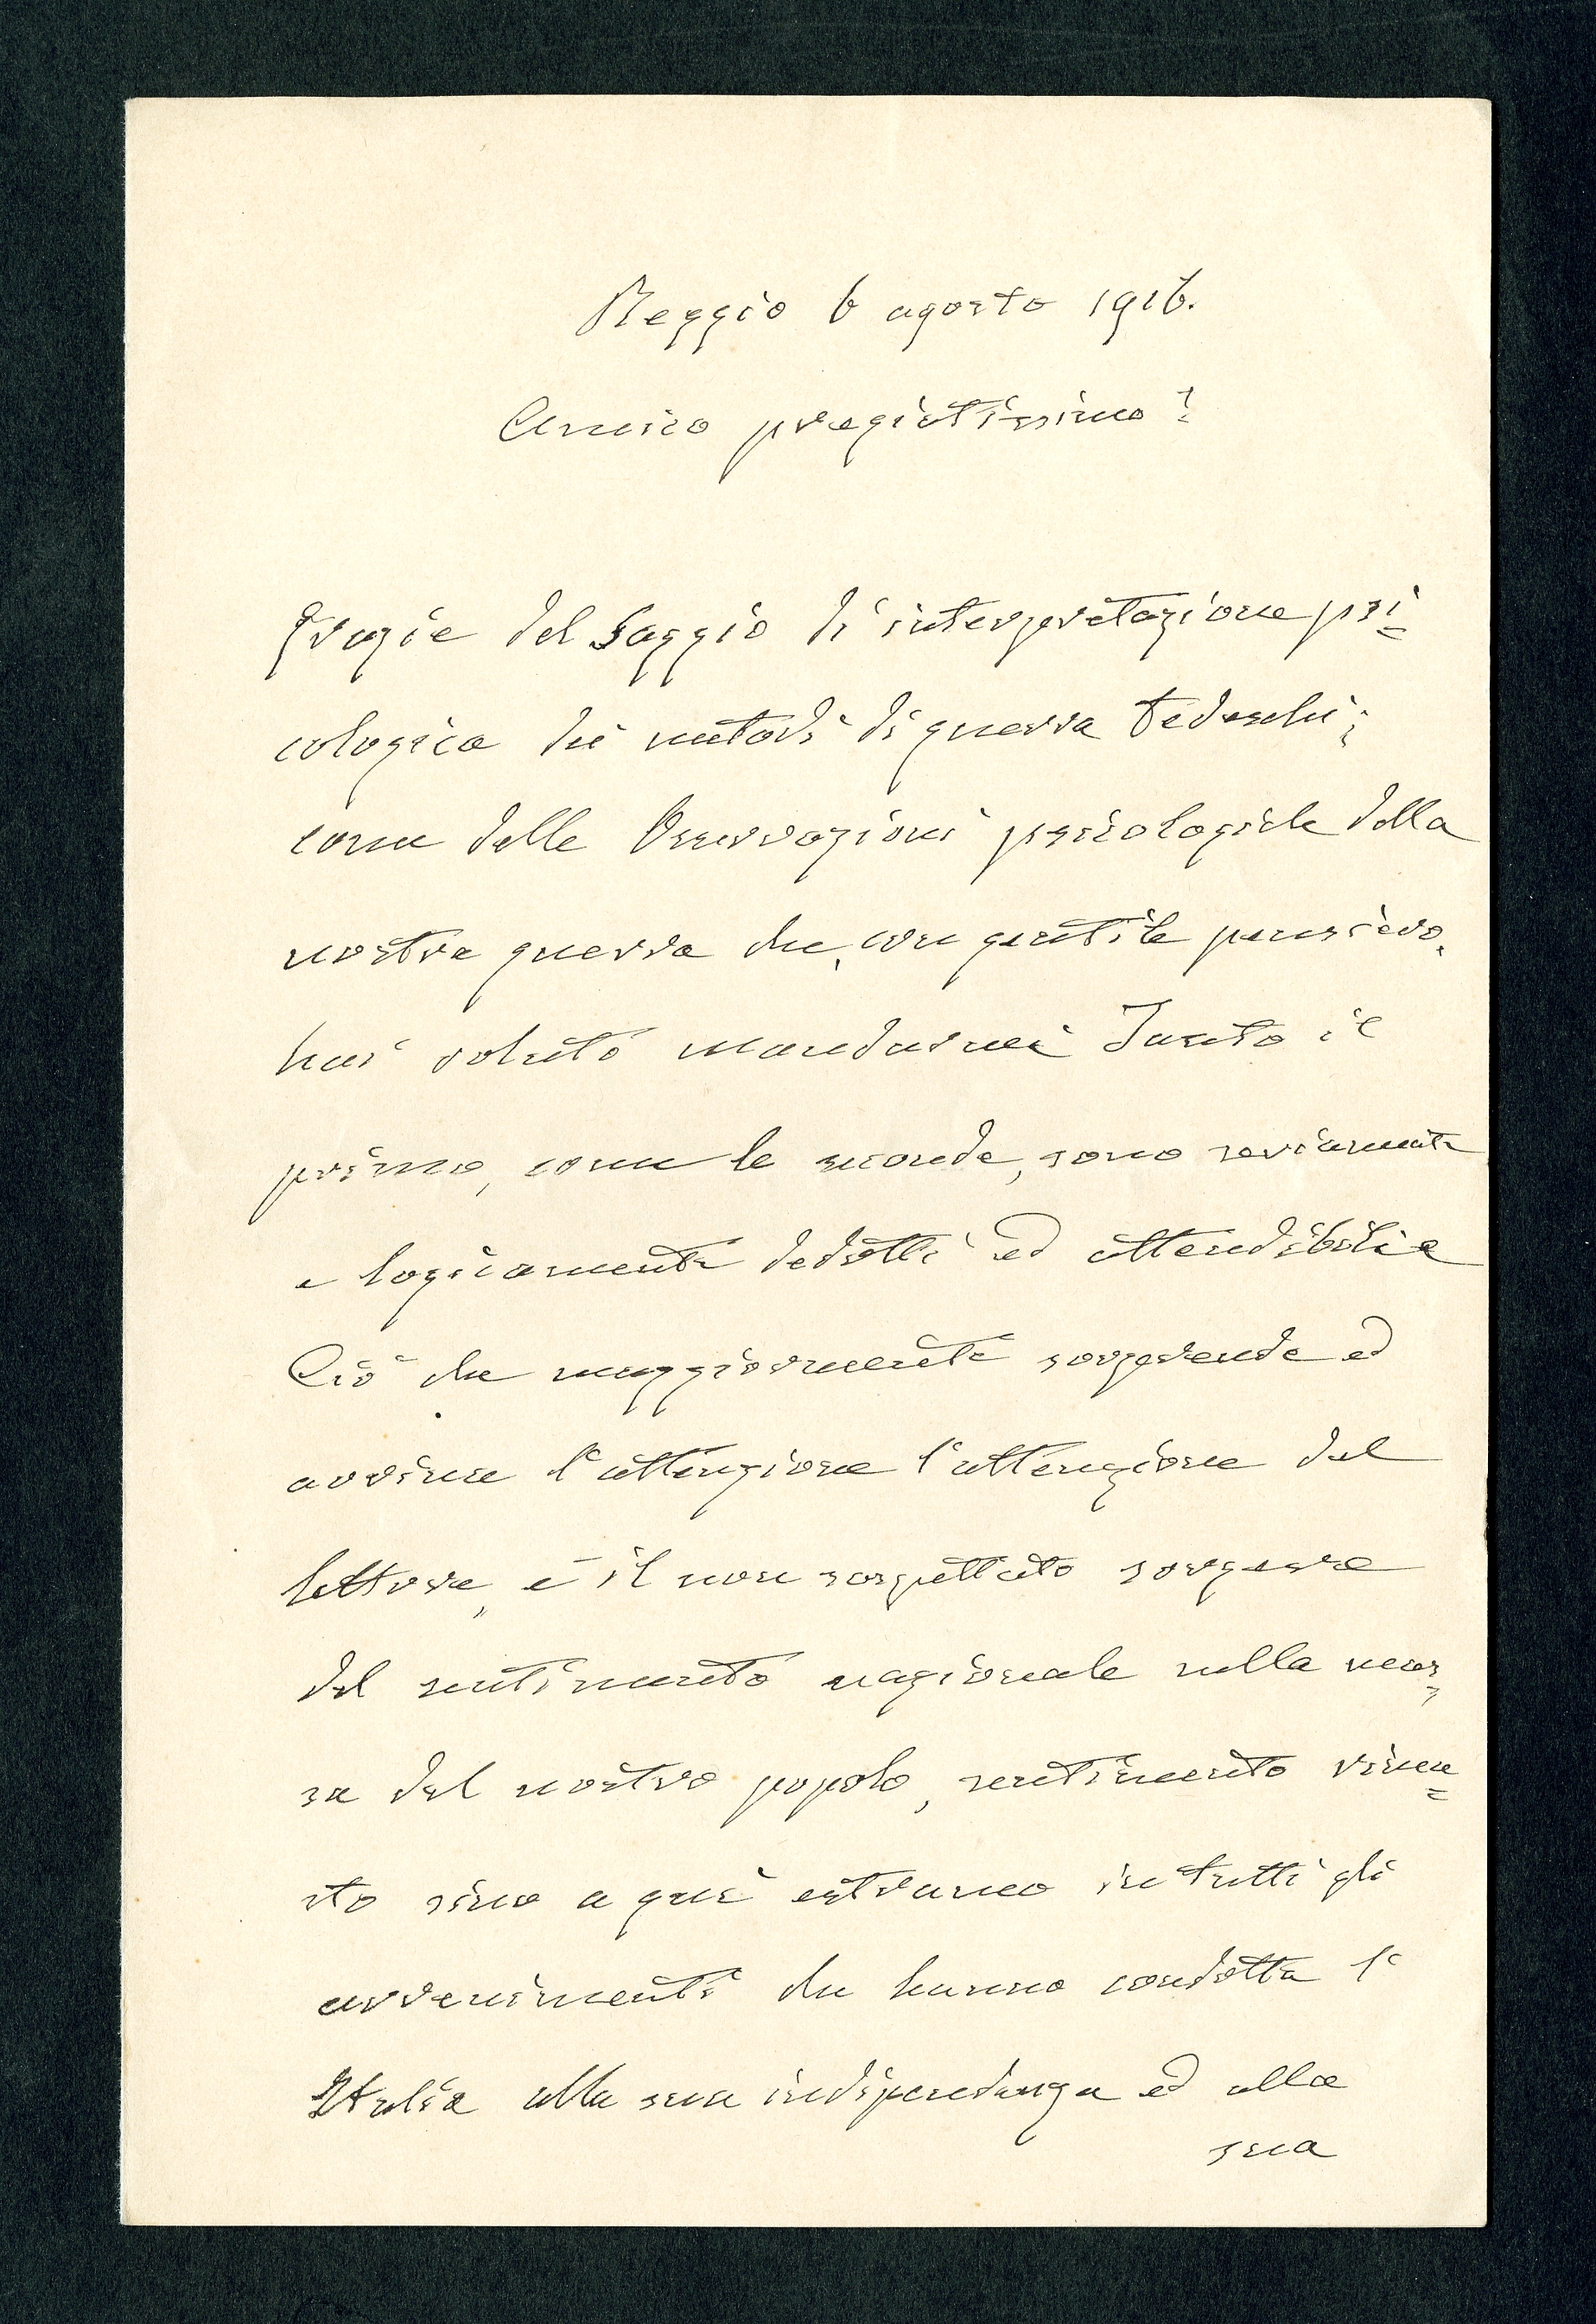 Reggio 6 agosto 1916.
Amico pregiatissimo!
Grazie del Saggio di interpretazione psi=
cologica dei metodi di guerra tedeschi;
come delle Osservazioni psicologiche della
nostra guerra che, con gentile pensiero,
hai voluto mandarmi Tanto il
primo, come le seconde, sono seriamente
e logicamente dedotti ed attendibilie
Ciò che maggiormente sorprende ed
avvince l'attenzione l'attenzione del
lettore, è il non sospettato sorgere
del sentimento nazionale nella mas=
sa del nostro popolo, sentimento rima=
sto sino a qui estraneo in tutti gli
avvenimenti che hanno condotta l'
Italia alla sua indipendenza ed alla
sua